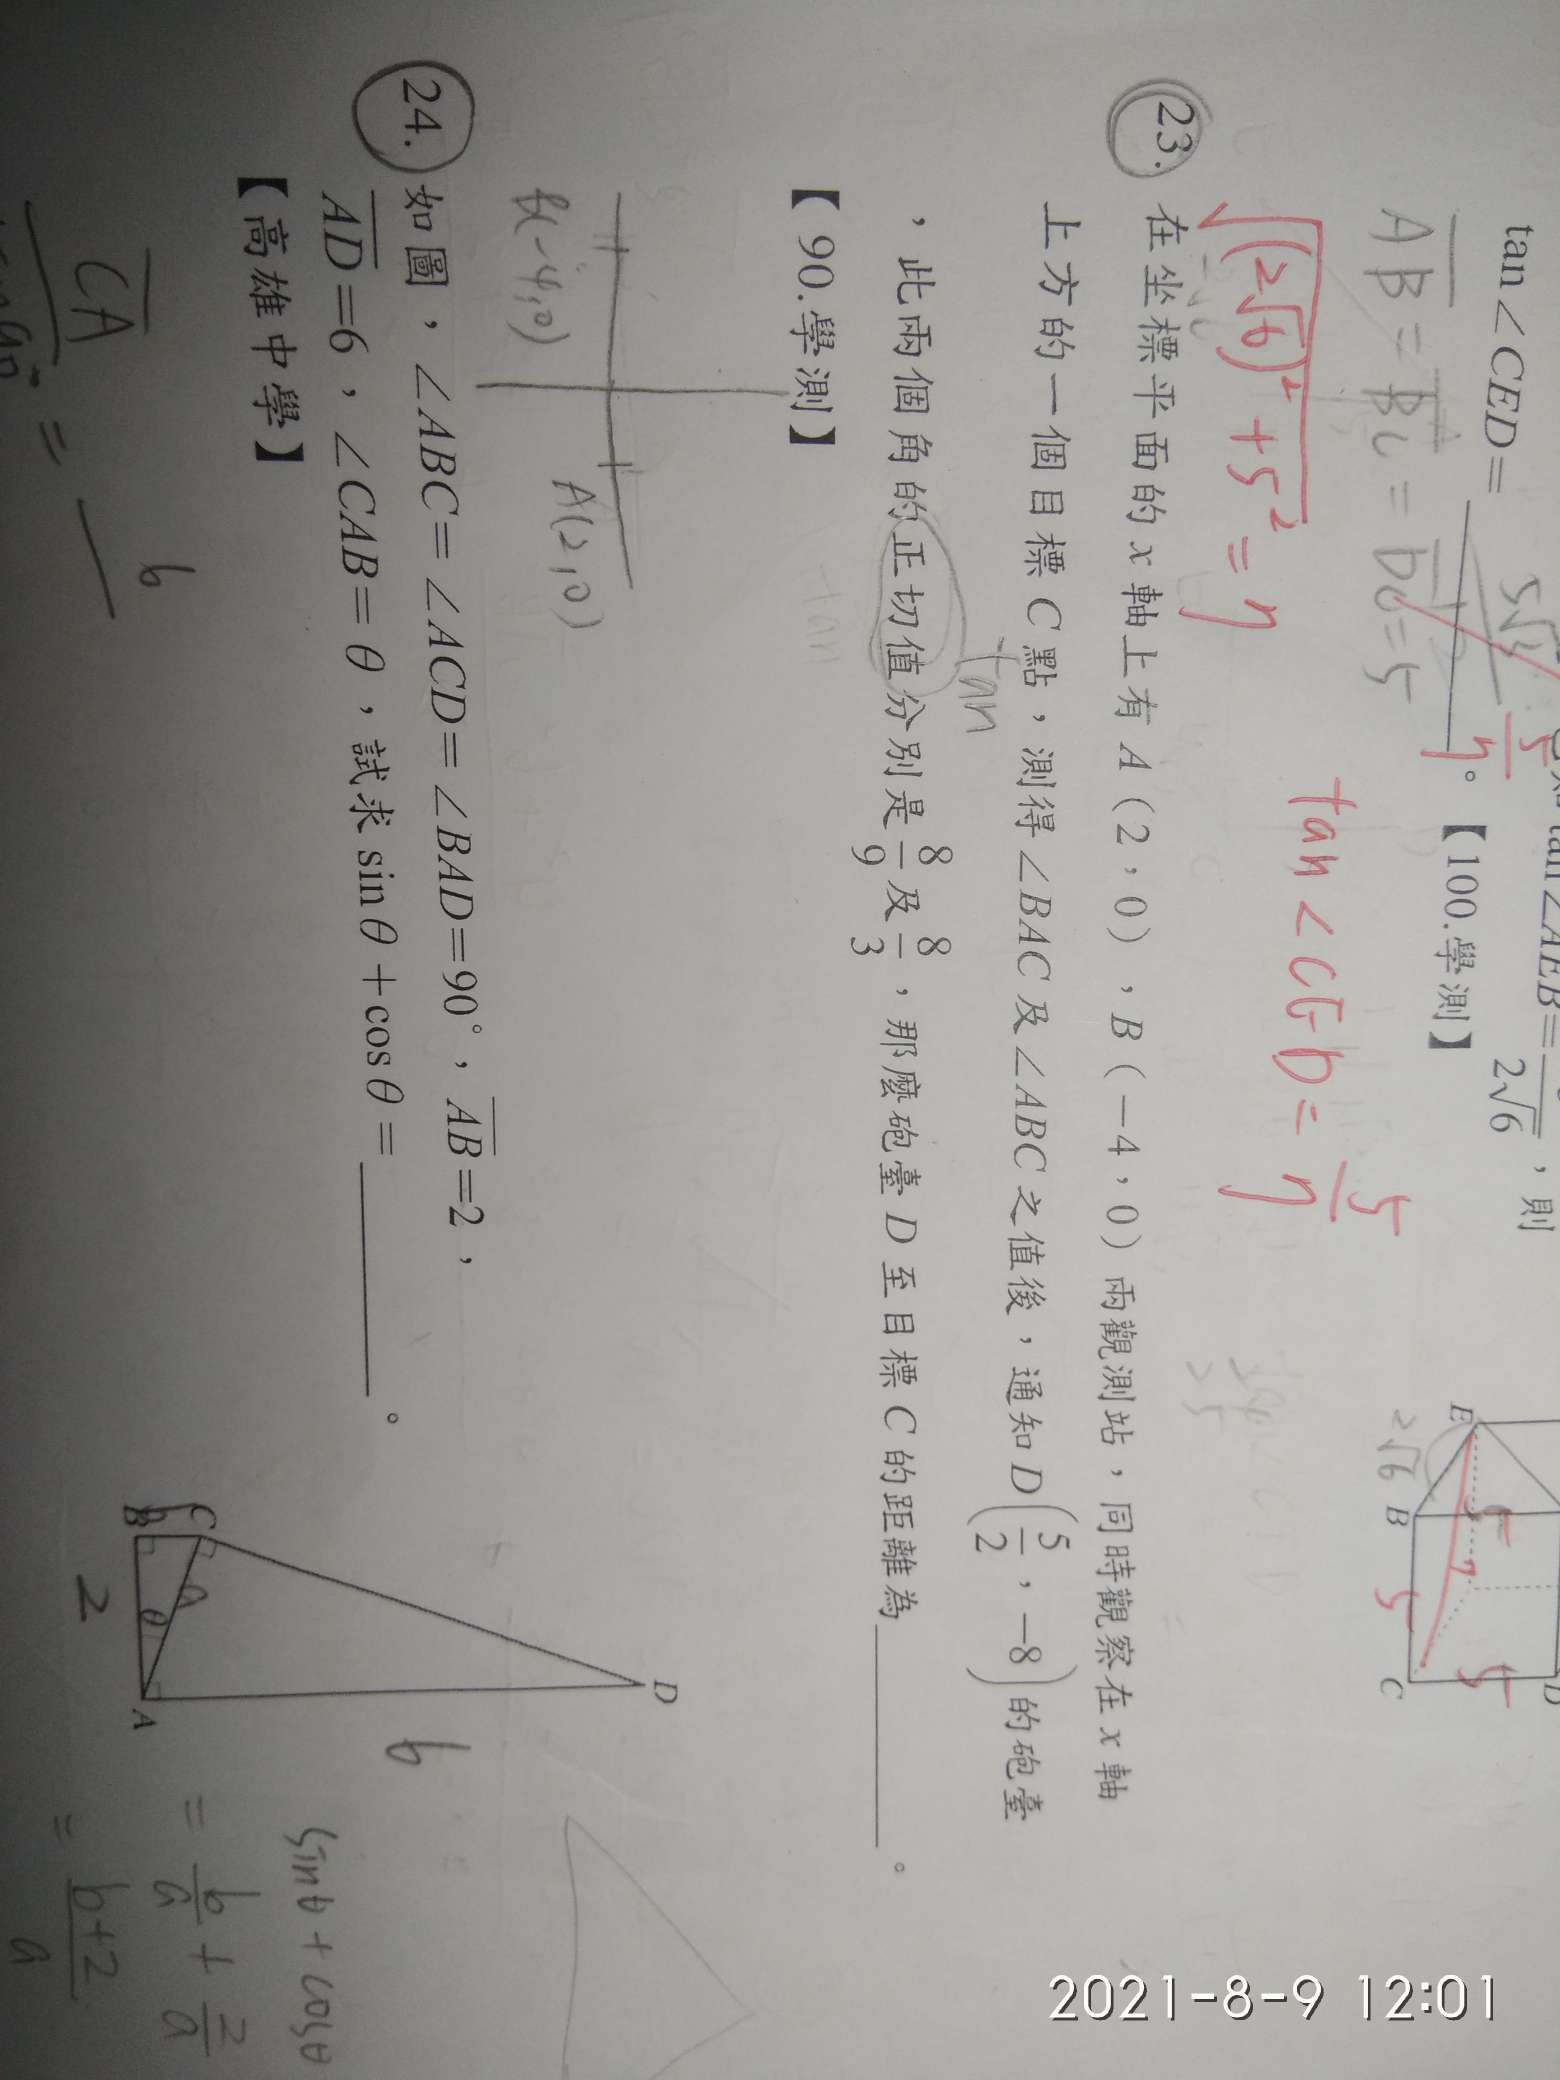 tan∠AEB=  /2√6，則
tan∠CED= 5/7。【100.學測】
AB = BC = DC = 5
√((2√6)²+5²) = 7
tan∠CED = 5/7
E
2√6
B
5
7
5
5
C
D
23. 在坐標平面的 x 軸上有 A（2，0），B（−4，0）兩觀測站，同時觀察在 x 軸
上方的一個目標 C 點，測得∠BAC 及∠ABC 之值後，通知 D(5/2，−8)的砲臺
，此兩個角的正切值分別是 8/9 及 8/3，那麼砲臺 D 至目標 C 的距離為＿＿＿＿。
tan
【90.學測】
B(-4,0)
A(2,0)
24. 如圖，∠ABC=∠ACD=∠BAD=90°，AB=2，
AD=6，∠CAB=θ，試求 sinθ+cosθ=＿＿＿＿。
【高雄中學】
C
B
b
a
θ
2
A
D
6
CA
=
6
sinθ+cosθ
= b/a + 2/a
= b+2/a
2021-8-9 12:01